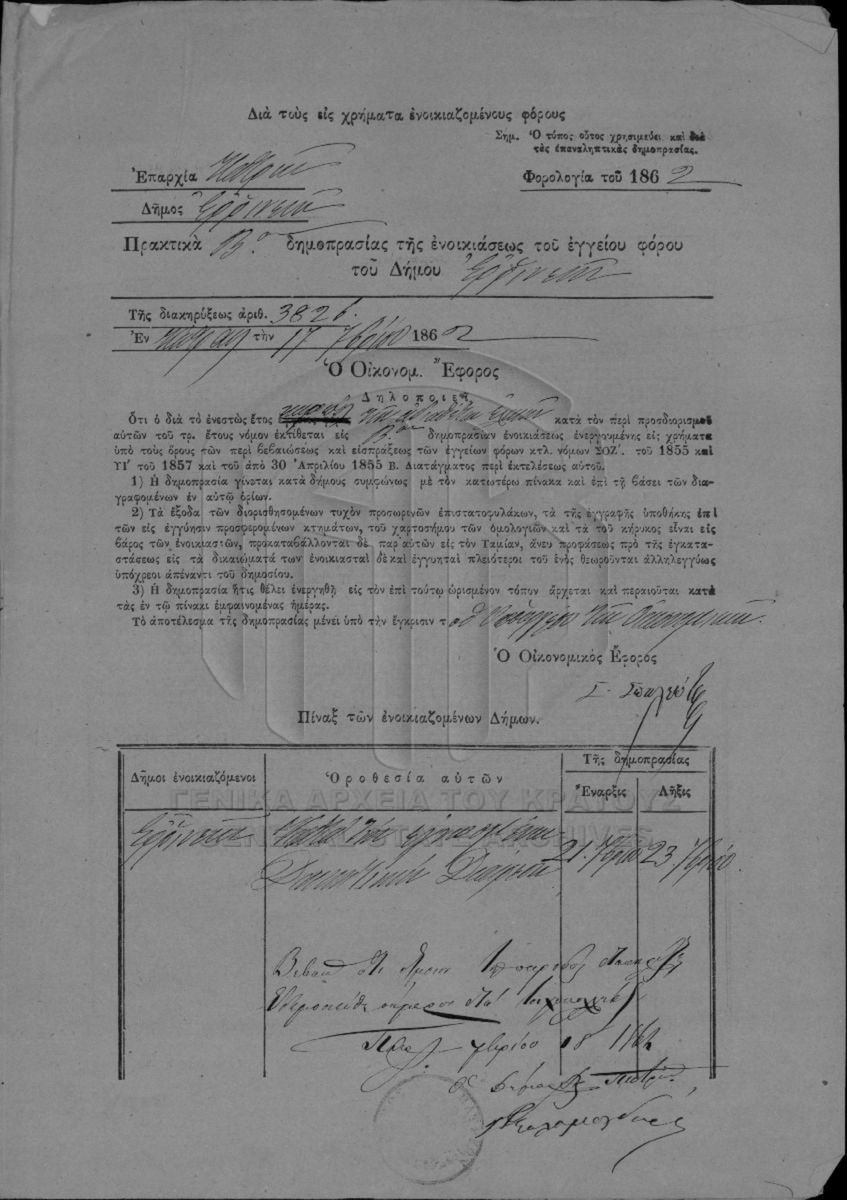 Διὰ τοὺς εἰς χρήματα ἐνοικιαζομένους φόρους
Σημ. Ὁ τύπος οὗτος χρησιμεύει καὶ διὰ
τὰς ἐπαναληπτικὰς δημοπρασίας.
Ἐπαρχία Πατρῶν
Φορολογία τοῦ 1862
Δῆμος Ἐρινεοῦ
Πρακτικὰ Βας δημοπρασίας τῆς ἐνοικιάσεως τοῦ ἐγγείου φόρου
τοῦ Δήμου Ἐρινεοῦ
Τῆς διακηρύξεως ἀριθ. 3826.
Ἐν Πάτραις τὴν 17 7βρίου 1862
Ὁ Οἰκονομ. Ἔφορος
Δηλοποιεῖ
Ὅτι ὁ διὰ τὸ ἐνεστὼς ἔτος κατὰ τὸν περὶ προσδιορισμοῦ
αὐτῶν τοῦ τρ. ἔτους νόμον ἐκτίθεται εἰς Βαν δημοπρασίαν ἐνοικιάσεως ἐνεργουμένης εἰς χρήματα
ὑπὸ τοὺς ὅρους τῶν περὶ βεβαιώσεως καὶ εἰσπράξεως τῶν ἐγγείων φόρων κτλ. νόμων ΣΟΖ΄. τοῦ 1855 καὶ
ΥΙ΄ τοῦ 1857 καὶ τοῦ ἀπὸ 30 Ἀπριλίου 1855 Β. Διατάγματος περὶ ἐκτελέσεως αὐτοῦ.
1) Ἡ δημοπρασία γίνεται κατὰ δήμους συμφώνως μὲ τὸν κατωτέρω πίνακα καὶ ἐπὶ τῇ βάσει τῶν δια-
γραφομένων ἐν αὐτῷ ὁρίων.
2) Τὰ ἔξοδα τῶν διορισθησομένων τυχὸν προσωρινῶν ἐπιστατοφυλάκων, τὰ τῆς ἐγγραφῆς ὑποθήκης ἐπὶ
τῶν εἰς ἐγγύησιν προσφερομένων κτημάτων, τοῦ χαρτοσήμου τῶν ὁμολογιῶν καὶ τὰ τοῦ κήρυκος εἶναι εἰς
βάρος τῶν ἐνοικιασιῶν, προκαταβάλλονται δὲ παρ' αὐτῶν εἰς τὸν Ταμίαν, ἄνευ προφάσεως πρὸ τῆς ἐγκατα-
στάσεως εἰς τὰ δικαιώματά των ἐνοικιασταὶ δὲ καὶ ἐγγυηταὶ πλειότεροι τοῦ ἑνὸς θεωροῦνται ἀλληλεγγύως
ὑπόχρεοι ἀπέναντι τοῦ δημοσίου.
3) Ἡ δημοπρασία ἥτις θέλει ἐνεργηθῆ εἰς τὸν ἐπὶ τούτῳ ὡρισμένον τόπον ἄρχεται καὶ περαιοῦται κατὰ
τὰς ἐν τῷ πίνακι ἐμφαινομένας ἡμέρας.
Τὸ ἀποτέλεσμα τῆς δημοπρασίας μένει ὑπὸ τὴν ἔγκρισιν τοῦ Ὑπουργείου τῶν Οἰκονομικῶν.
Ὁ Οἰκονομικὸς Ἔφορος
Πίναξ τῶν ἐνοικιαζομένων Δήμων.
Δῆμοι ἐνοικιαζόμενοι
Ὁροθεσία αὐτῶν
Τῆς δημοπρασίας
Ἔναρξις
Λῆξις
ΓΕΝΙΚΑ ΑΡΧΕΙΑ ΤΟΥ ΚΡΑΤΟΥΣ
GENERAL STATE ARCHIVES
Ἐρινεοῦ
21 7βρίου
23 7βρίου
7βρίου 18 1862